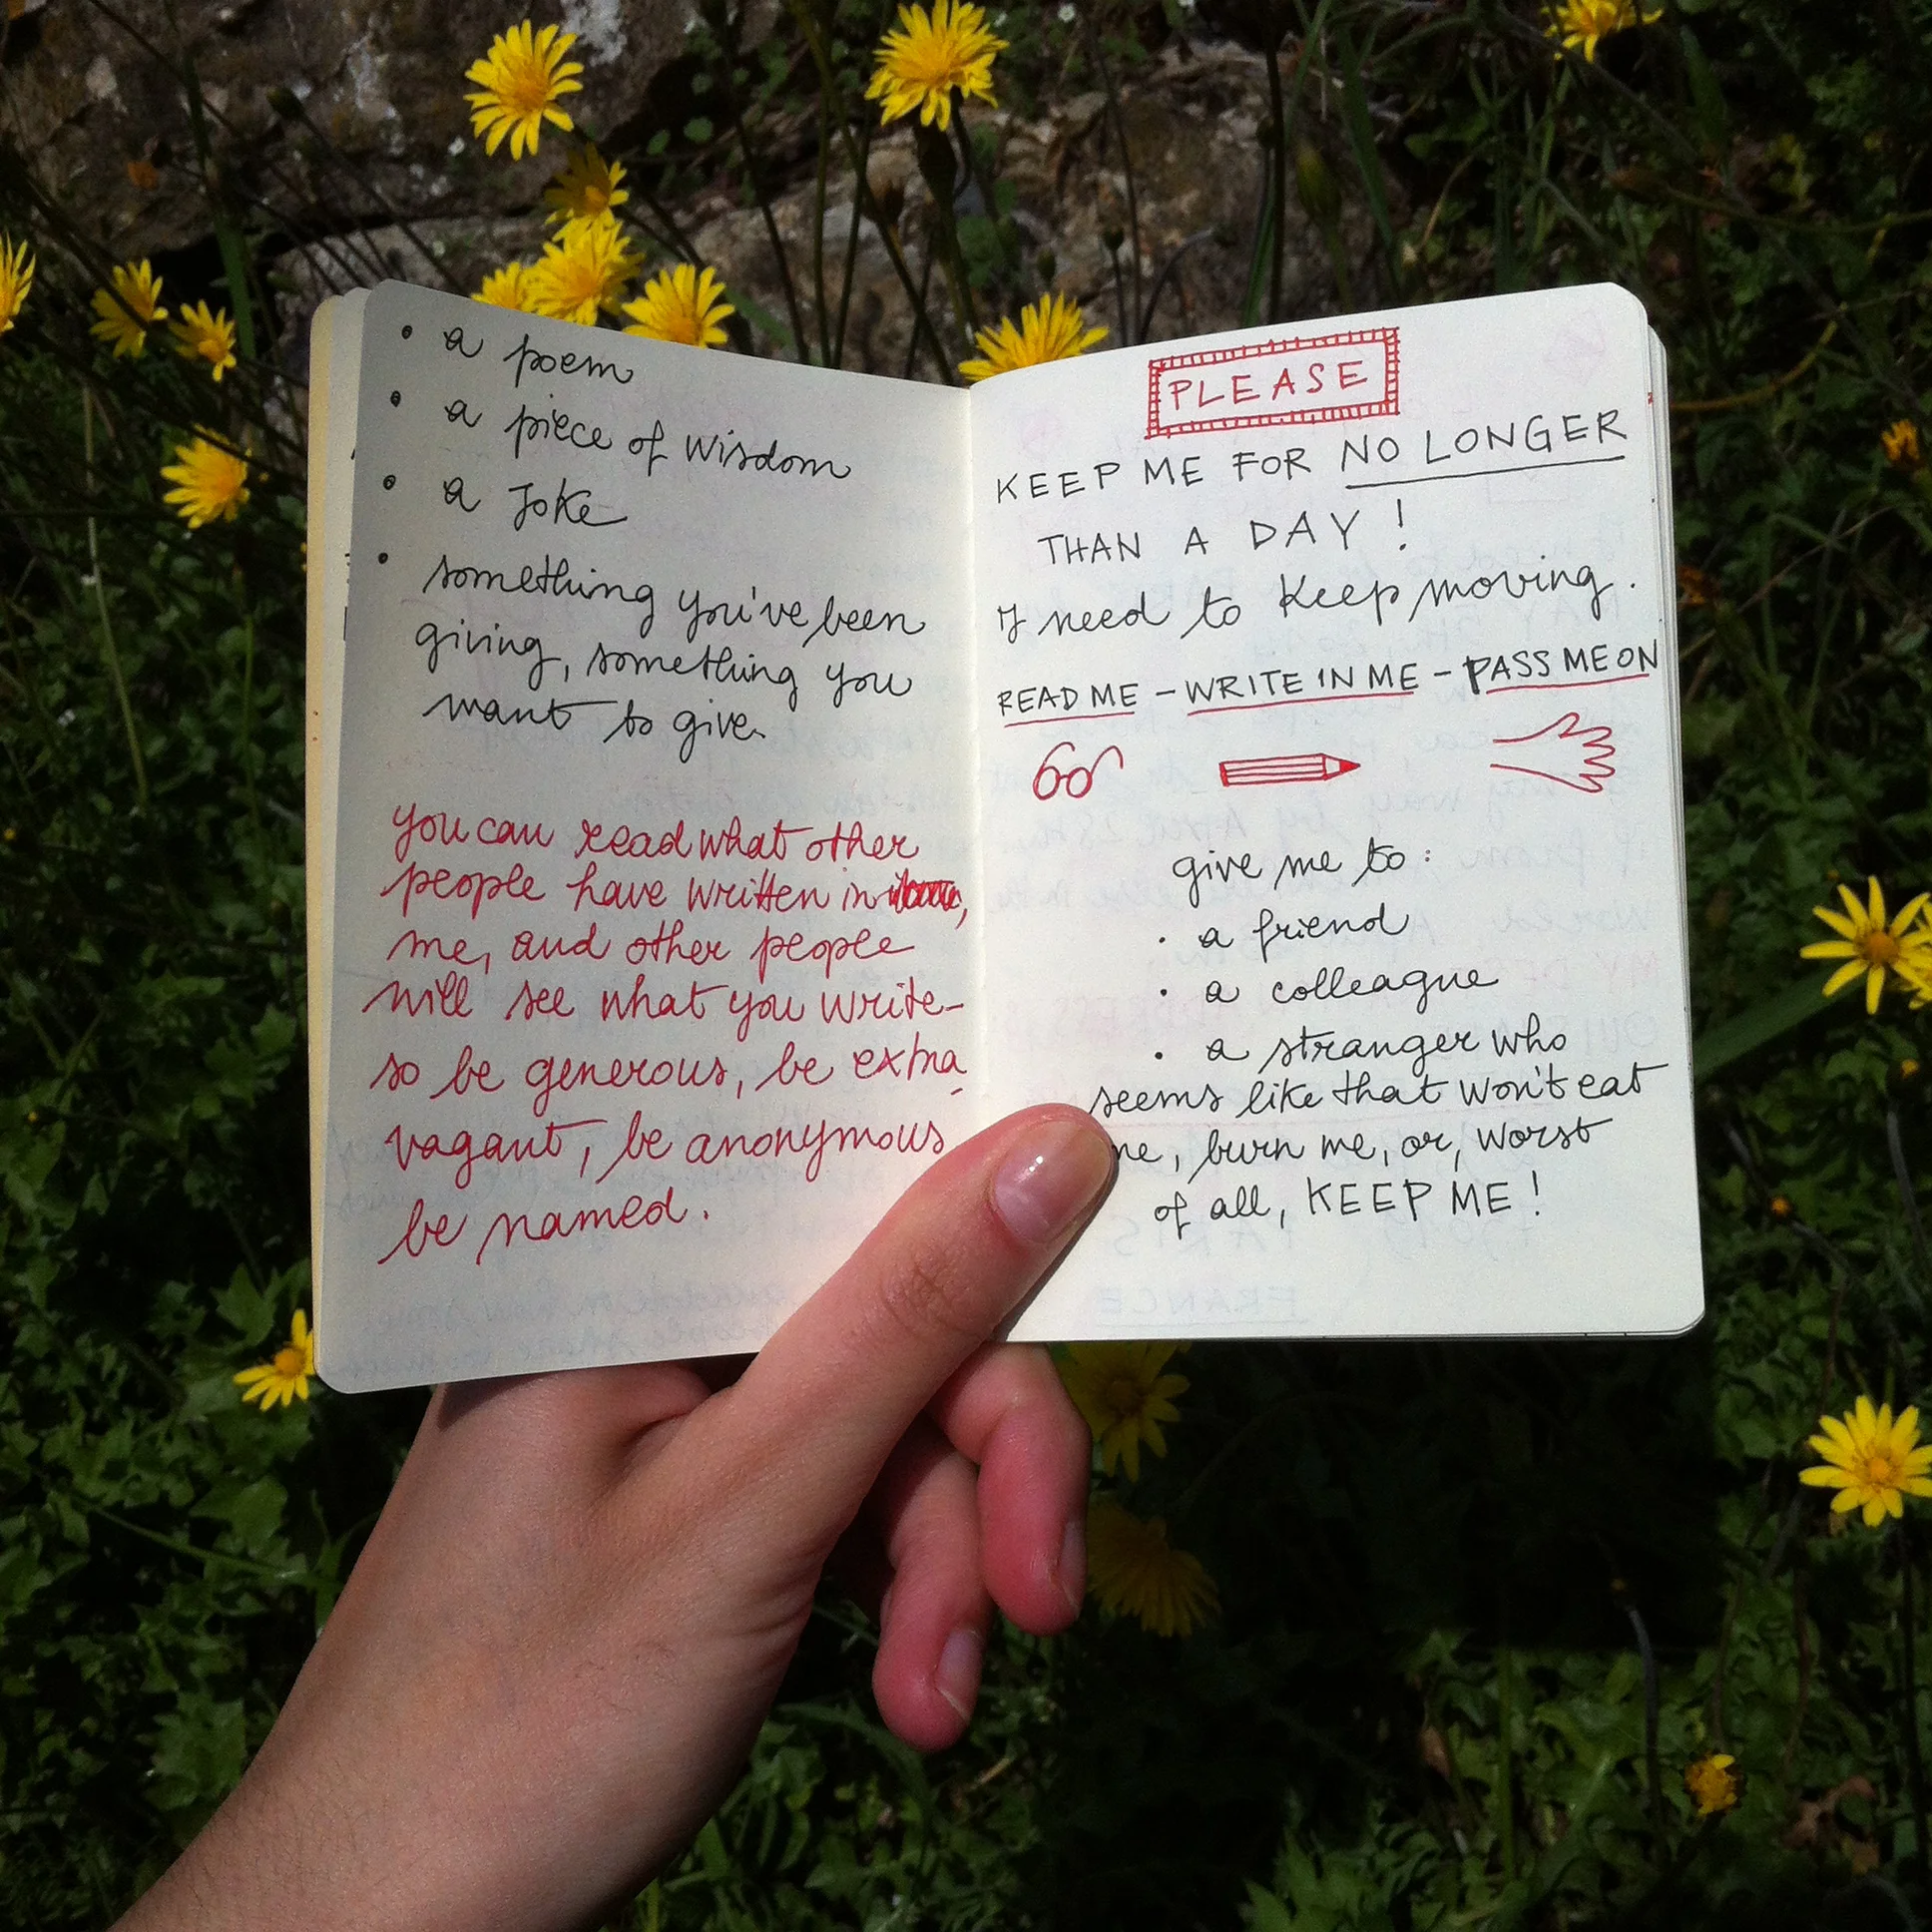 • a poem
• a piece of wisdom
• a Joke
• something you've been
giving, something you
want to give.
you can read what other
people have written in
me, and other people
will see what you write-
so be generous, be extra-
vagant, be anonymous
be named.
PLEASE
KEEP ME FOR NO LONGER
THAN A DAY !
I need to keep moving.
READ ME - WRITE IN ME - PASS ME ON
give me to :
• a friend
• a colleague
• a stranger who
seems like that won't eat
me, burn me, or, worst
of all, KEEP ME !
FRANCE